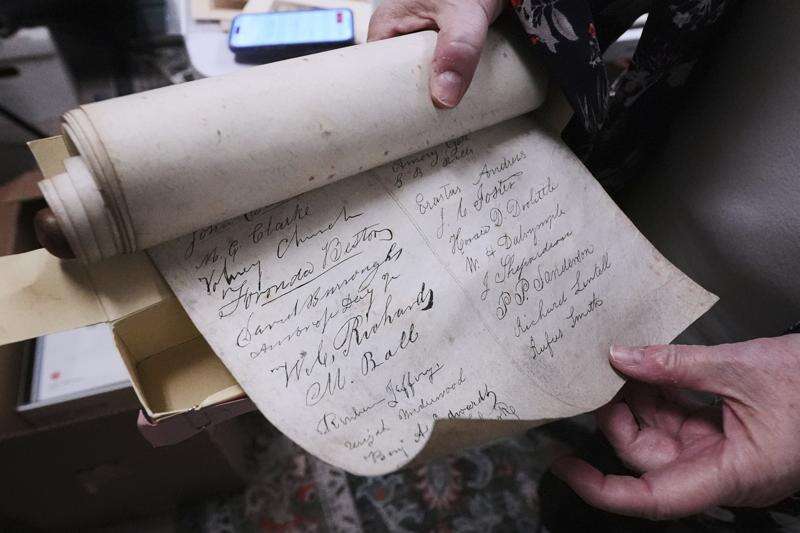 M. G. Clarke
Volney Church
Foronda Bestor
David Burroughs
Ambrose Day Jr
W. C. Richards
M. Ball
Reuben Jeffreys
Underwood
Benj
Amory
S. B.
Erastus Andrews
J. C. Foster
Horace D. Doolittle
W. H. Dalrymple
J Sheparson
P. P. Sanderson
Richard Lentell
Rufus Smith